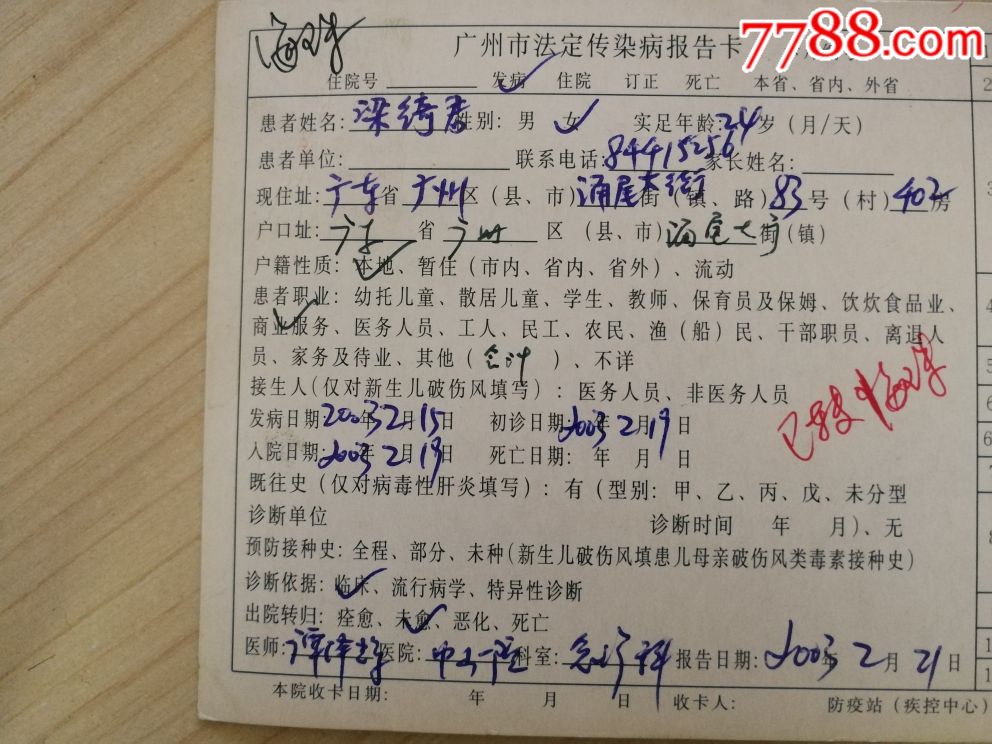 7788.com
广州市法定传染病报告卡
住院号 发病 住院 订正 死亡 本省、省内、外省
患者姓名：梁绮 性别：男 女 实足年龄：24岁（月/天）
患者单位： 联系电话：84415256 家长姓名：
现住址：广东省广州区（县、市）涌尾大街街（镇、路）83号（村）402房
户口址：广东省广州区（县、市）涌尾大街（镇）
户籍性质：本地、暂住（市内、省内、省外）、流动
患者职业：幼托儿童、散居儿童、学生、教师、保育员及保姆、饮炊食品业、
商业服务、医务人员、工人、民工、农民、渔（船）民、干部职员、离退人
员、家务及待业、其他（会计）、不详
接生人（仅对新生儿破伤风填写）：医务人员、非医务人员
发病日期：2003年2月15日 初诊日期：2003年2月19日
入院日期：2003年2月19日 死亡日期： 年 月 日
既往史（仅对病毒性肝炎填写）：有（型别：甲、乙、丙、戊、未分型
诊断单位 诊断时间 年 月）、无
预防接种史：全程、部分、未种（新生儿破伤风填患儿母亲破伤风类毒素接种史）
诊断依据：临床、流行病学、特异性诊断
出院转归：痊愈、未愈、恶化、死亡
医师： 医院：中山一院 科室：急诊科 报告日期：2003年2月21日
本院收卡日期： 年 月 日 收卡人： 防疫站（疾控中心）